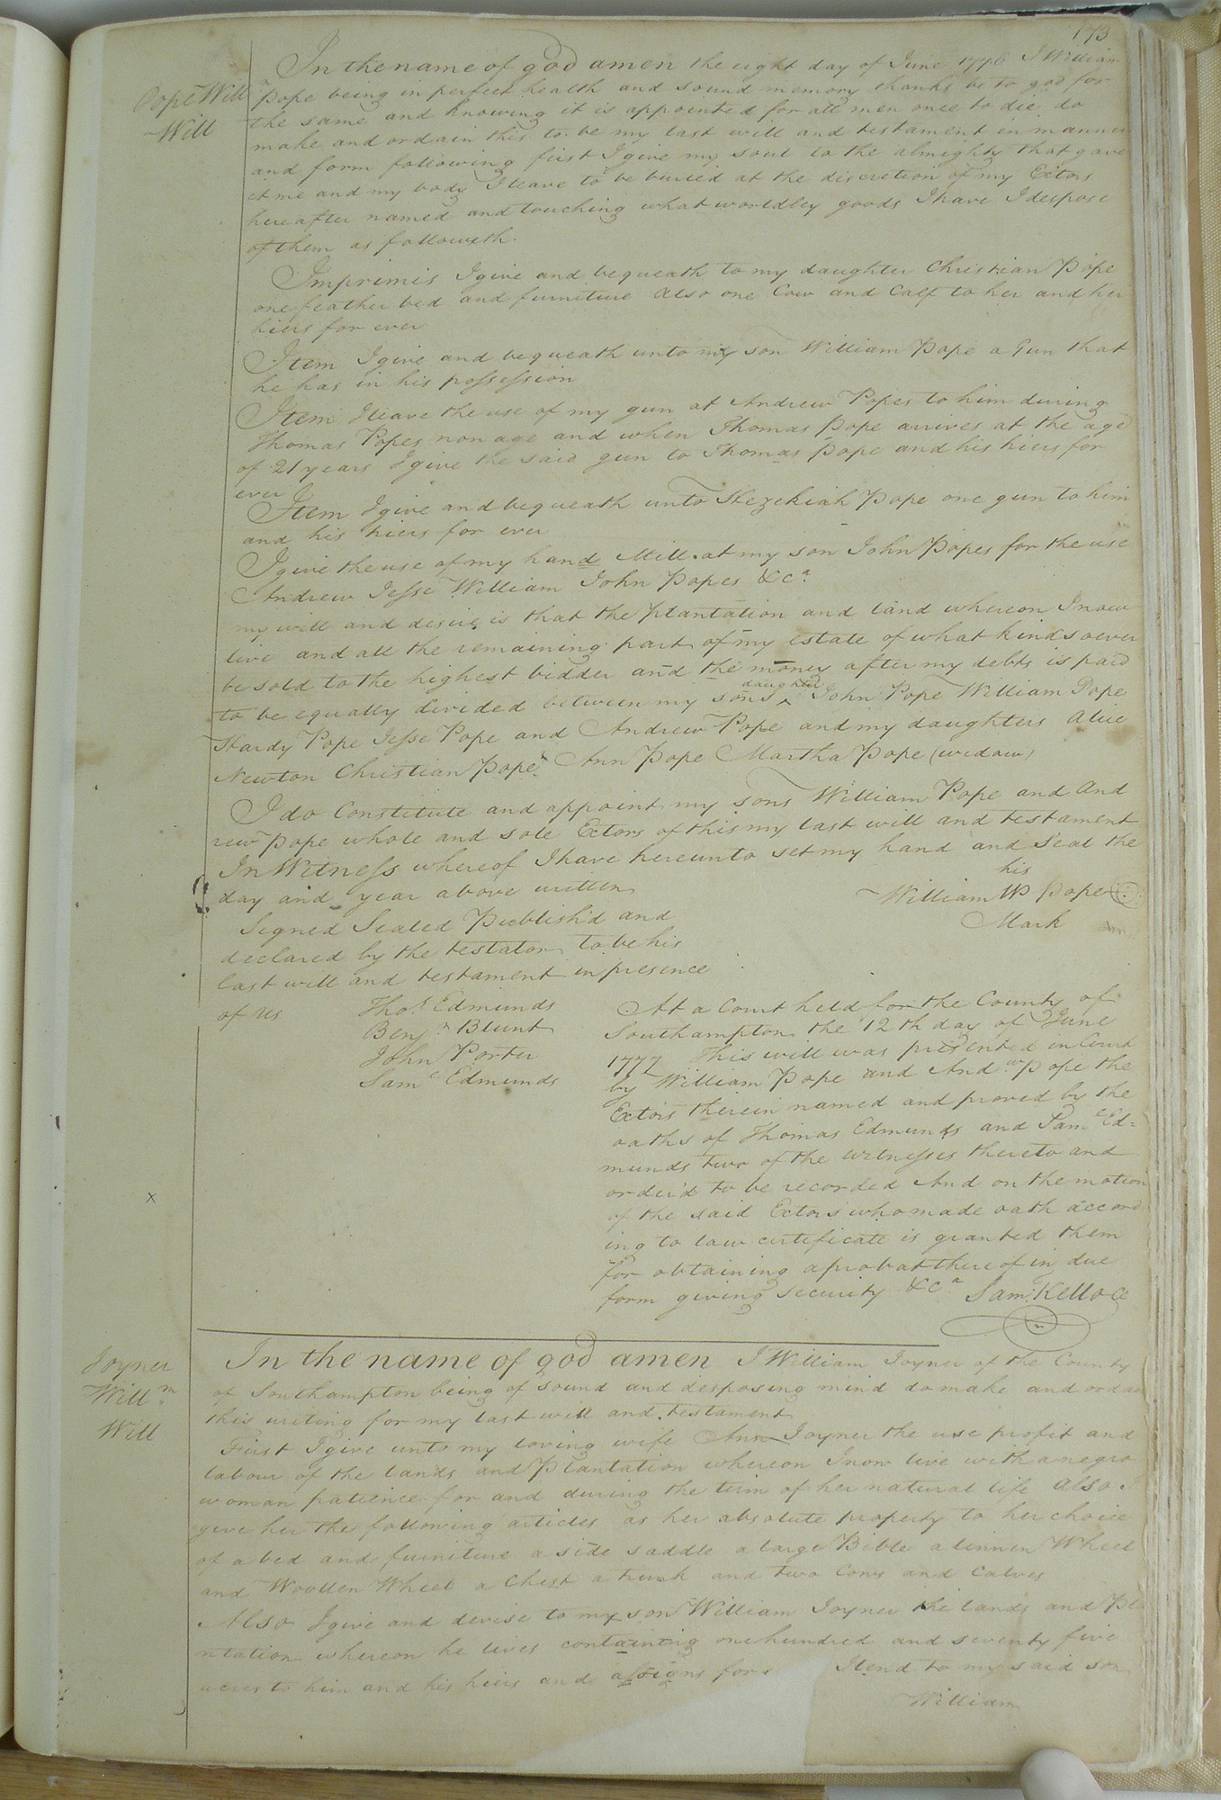 173
Pope Will
Will
In the name of god amen the eight day of June 1776 I William
Pope being in perfect health and sound memory thanks be to god for
the same and knowing it is appointed for all men once to die do
make and ordain this to be my last will and testament in manner
and form following first I give my soul to the almighty that gave
it me and my body I leave to be buried at the discretion of my Exctors
hereafter named and touching what worldley goods I have I despose
of them as followeth.
Imprimis I give and bequeath to my daughter Christian Pope
one feather bed and furniture also one Cow and Calf to her and her
hiers for ever
Item I give and bequeath unto my son William Pope a Gun that
he has in his possession
Item I leave the use of my gun at Andrew Popes to him during
Thomas Popes non age and when Thomas Pope arrives at the age
of 21 years I give the said gun to Thomas Pope and his hiers for
ever
Item I give and bequeath unto Hezekiah Pope one gun to him
and his hiers for ever
I give the use of my hand Mill at my son John Popes for the use
Andrew Jesse William John Popes &ca
my will and desire is that the plantation and land whereon I now
live and all the remaining part of my estate of what kind soever
be sold to the highest bidder and the money after my debts is paid
to be equally divided between my sons daughter John Pope William Pope
Hardy Pope Jesse Pope and Andrew Pope and my daughters Alice
Newton Christian Pope Ann Pope Martha Pope (widow)
I do Constitute and appoint my sons William Pope and And
rew Pope whole and sole Exctors of this my last will and testament
In Witness whereof I have hereunto set my hand and Seal the
day and year above written
his
William WP Pope
Mark
Signed Sealed Publish'd and
declared by the testator to be his
last will and testament in presence
of us
Thos. Edmunds
Benja. Blunt
John Porter
Saml Edmunds
At a Court held for the County of
Southampton the 12th day of June
1777 This will was presented in Court
by William Pope and Andw Pope the
Exctors therein named and proved by the
oaths of Thomas Edmunds and Saml Ed=
munds two of the witnesses thereto and
order'd to be recorded And on the motion
of the said Exctors who made oath accord
ing to law certificate is granted them
for obtaining a probat thereof in due
form giving security &ca Sam: Kello Cl
x
Joyner
Willm.
Will
In the name of god amen I William Joyner of the County
of Southampton being of sound and desposing mind do make and ordain
this writing for my last will and testament
First I give unto my loving wife Ann Joyner the use profit and
labour of the lands and Plantation whereon I now live with a negro
woman patience for and during the term of her natural life Also I
give her the following articles as her absolute property to her choice
of a bed and furniture a side saddle a large Bible a linnen Wheel
and Woollen Wheel a Chest a trunk and two Cows and Calves
Also I give and devise to my son William Joyner the lands and Pla
ntation whereon he lives containing one hundred and seventy five
acres to him and his hiers and assigns for Item I lend to my said son
William